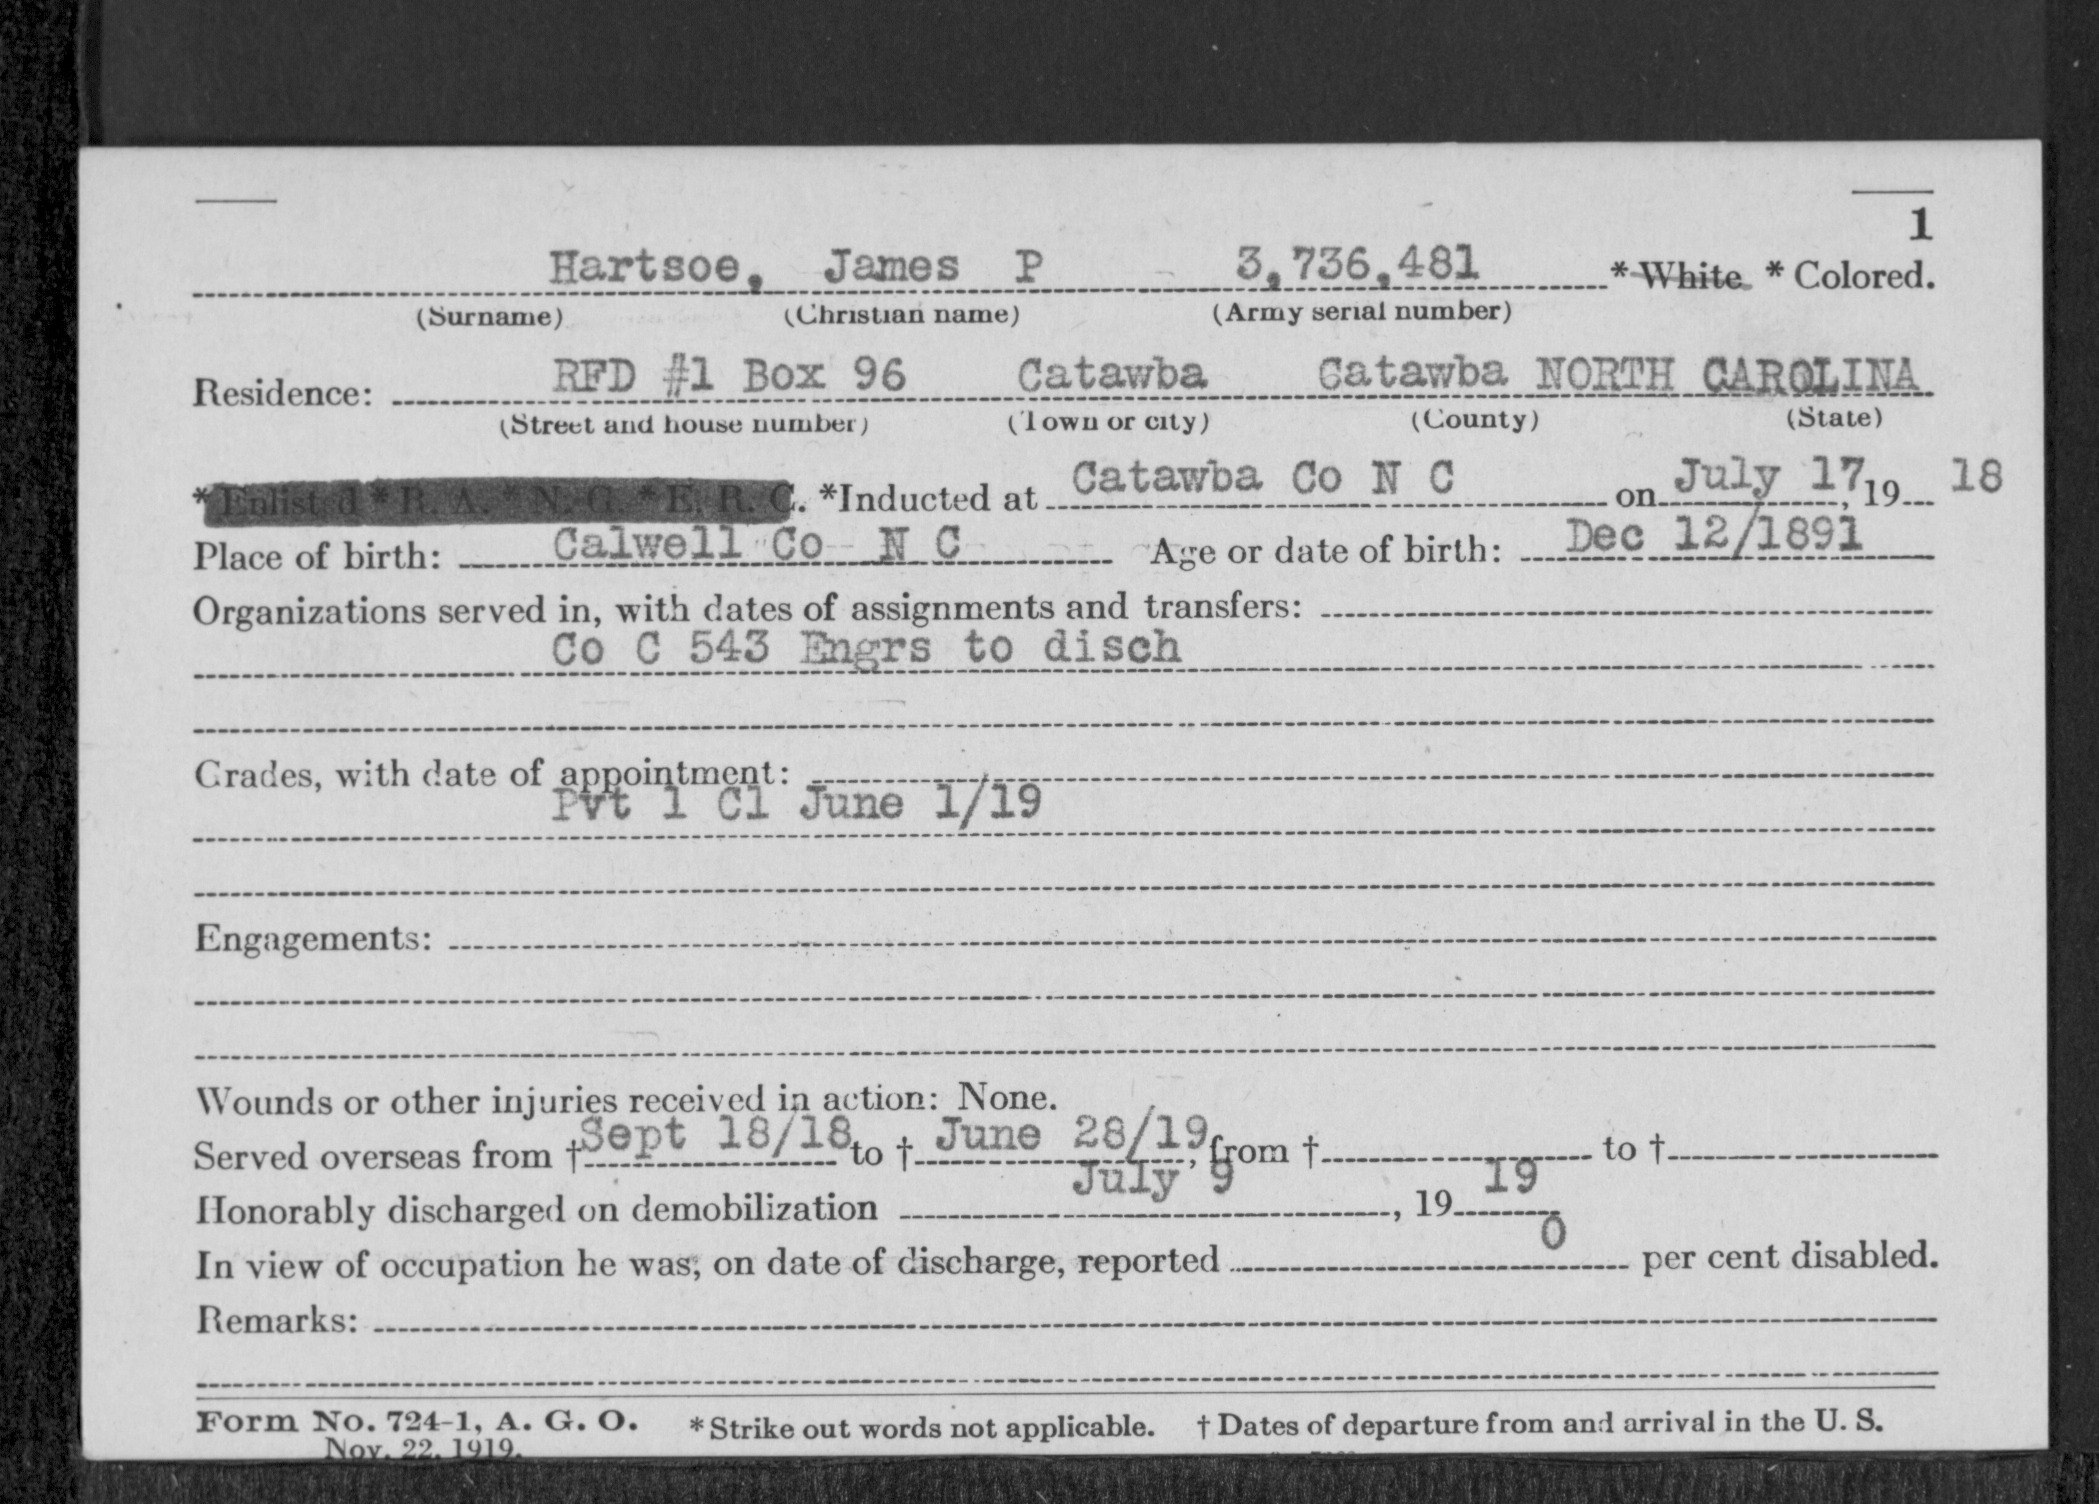 1
Hartsoe, James P 3,736,481 * White * Colored.
(Surname) (Christian name) (Army serial number)
Residence: RFD #1 Box 96 Catawba Catawba NORTH CAROLINA
(Street and house number) (Town or city) (County) (State)
*Enlisted *R. A. *N. G. *E. R. C. *Inducted at Catawba Co N C on July 17, 19 18
Place of birth: Calwell Co N C Age or date of birth: Dec 12/1891
Organizations served in, with dates of assignments and transfers:
Co C 543 Engrs to disch
Grades, with date of appointment:
Pvt 1 Cl June 1/19
Engagements:
Wounds or other injuries received in action: None.
Served overseas from † Sept 18/18 to † June 28/19, from † to †
Honorably discharged on demobilization July 9, 19 19
In view of occupation he was, on date of discharge, reported 0 per cent disabled.
Remarks:
Form No. 724-1, A. G. O. * Strike out words not applicable. † Dates of departure from and arrival in the U. S.
Nov. 22, 1919.